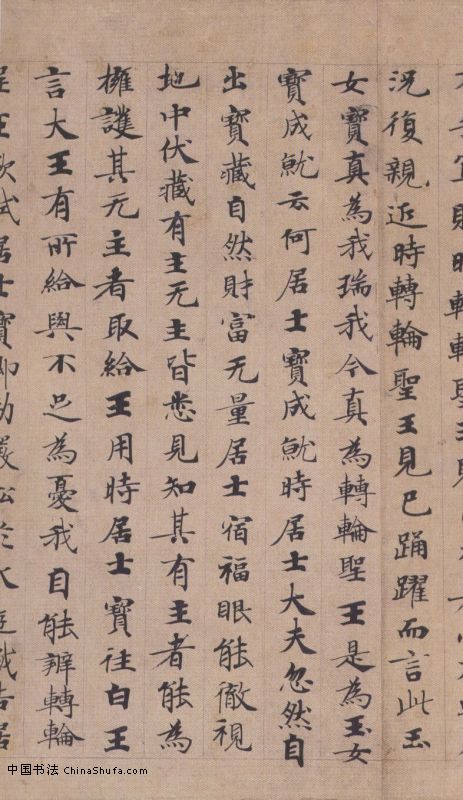 時轉輪聖王見
況復親近時轉輪聖王見已踊躍而言此玉
女寶真為我瑞我今真為轉輪聖王是為玉女
寶成就云何居士寶成就時居士大夫忽然自
出寶藏自然財富无量居士宿福眼能徹視
地中伏藏有主无主皆悉見知其有主者能為
擁護其无主者取給王用時居士寶往白王
言大王有所給與不足為憂我自能辦轉輪
聖王欲試居士寶即勅嚴舩於水遊戲告居
中国书法 ChinaShufa.com